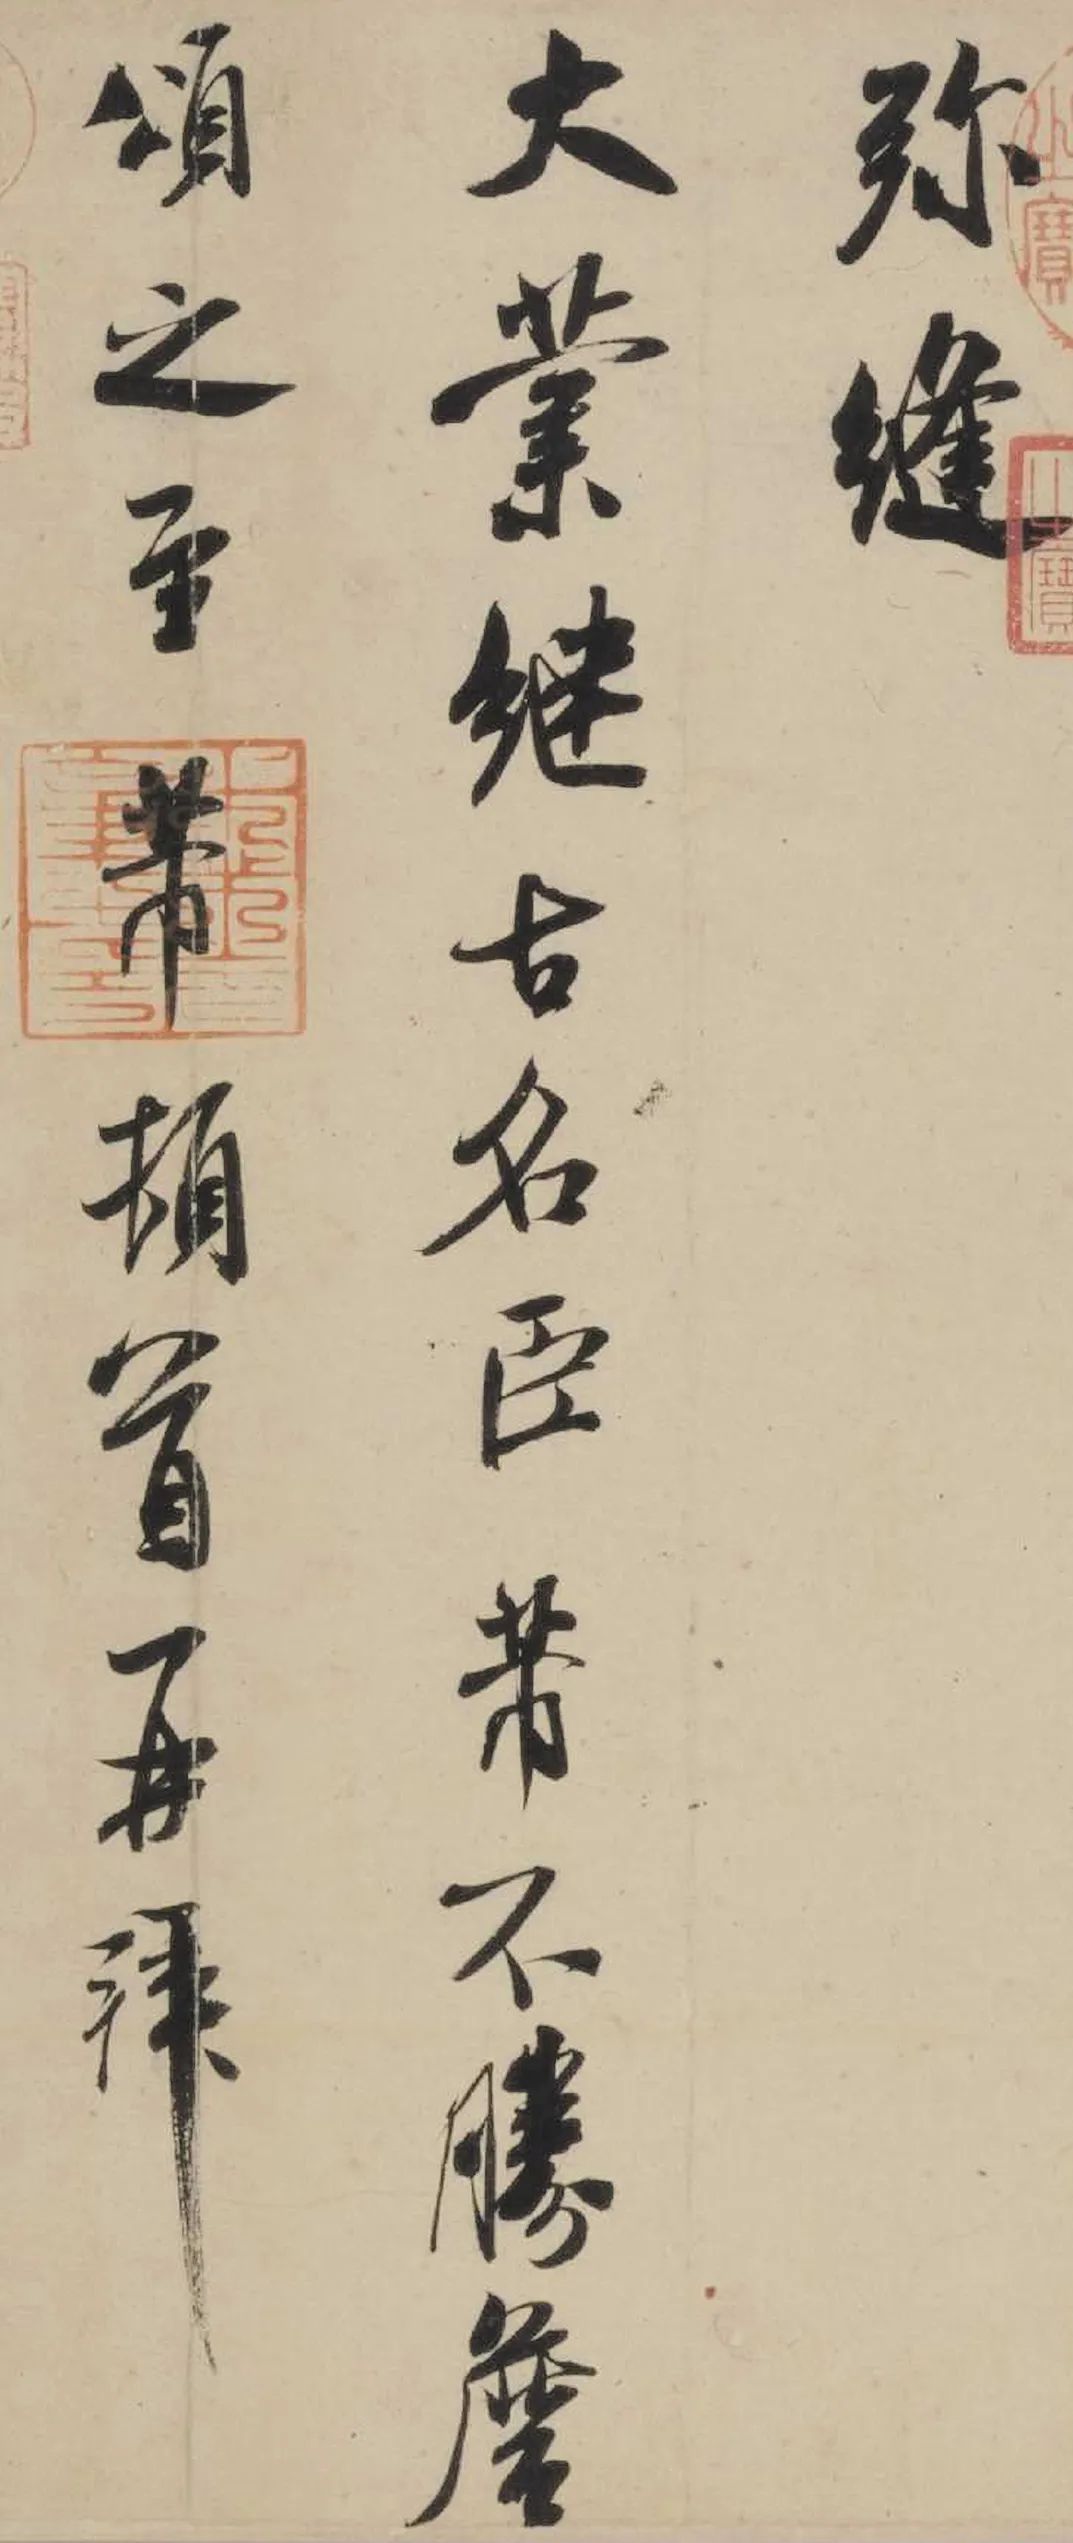 弥縫
大業继古名臣芾不勝詹
頌之至芾頓首再拜